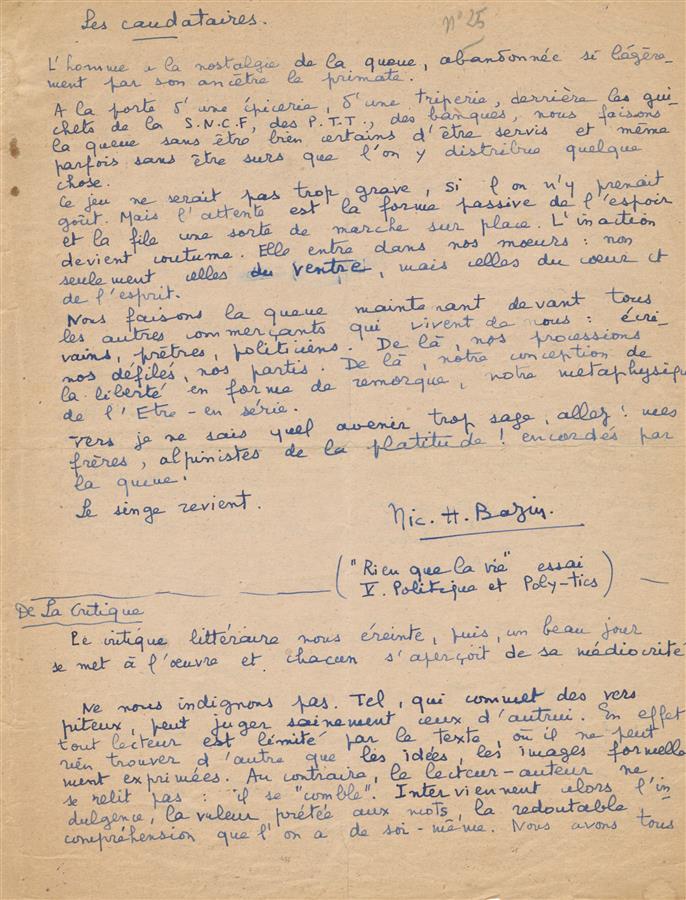 Les caudataires.
n° 25
L'homme a la nostalgie de la queue, abandonnée si légère-
ment par son ancêtre le primate.
A la porte d'une épicerie, d'une triperie, derrière les gui-
chets de la S.N.C.F, des P.T.T., des banques, nous faisons
la queue sans être bien certains d'être servis et même
parfois sans être surs que l'on y distribue quelque
chose.
Ce jeu ne serait pas trop grave, si l'on n'y prenait
goût. Mais l'attente est la forme passive de l'espoir
et la file une sorte de marche sur place. L'inaction
devient coutume. Elle entre dans nos mœurs : non
seulement celles du ventre, mais celles du cœur et
de l'esprit.
Nous faisons la queue maintenant devant tous
les autres commerçants qui vivent de nous : écri-
vains, prêtres, politiciens. De là, nos processions
nos défilés, nos partis. De là, notre conception de
la liberté en forme de remorque, notre métaphysique
de l'Etre-en série.
Vers je ne sais quel avenir trop sage, allez ! mes
frères, alpinistes de la platitude ! encordés par
la queue !
Le singe revient.
Nic. H. Bazin.
("Rien que la vie" essai
V. Politique et Poly-tics)
De La Critique
Le critique littéraire nous éreinte, puis, un beau jour
se met à l'œuvre et chacun s'aperçoit de sa médiocrité
Ne nous indignons pas. Tel, qui commet des vers
piteux, peut juger sainement ceux d'autrui. En effet
tout lecteur est limité par le texte, où il ne peut
rien trouver d'autre que les idées, les images formelle-
ment exprimées. Au contraire, le lecteur-auteur ne
se relit pas : il se "comble". Interviennent alors l'in
dulgence, la valeur prêtée aux mots, la redoutable
compréhension que l'on a de soi-même. Nous avons tous